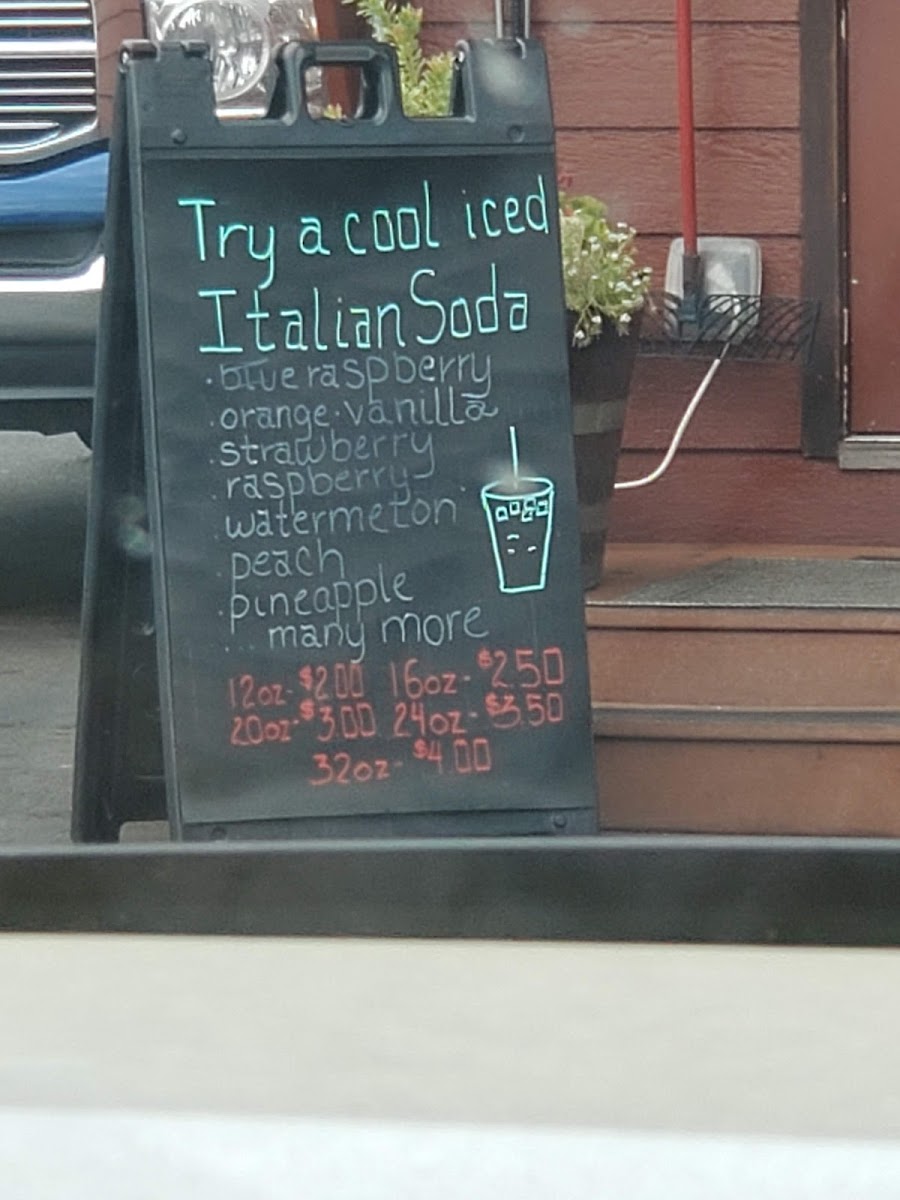 Try a cool iced
Italian Soda
· blue raspberry
· orange · vanilla
· strawberry
· raspberry
· watermelon
· peach
· pineapple
... many more
12oz-$2.00 16oz-$2.50
20oz-$3.00 24oz-$3.50
32oz-$4.00